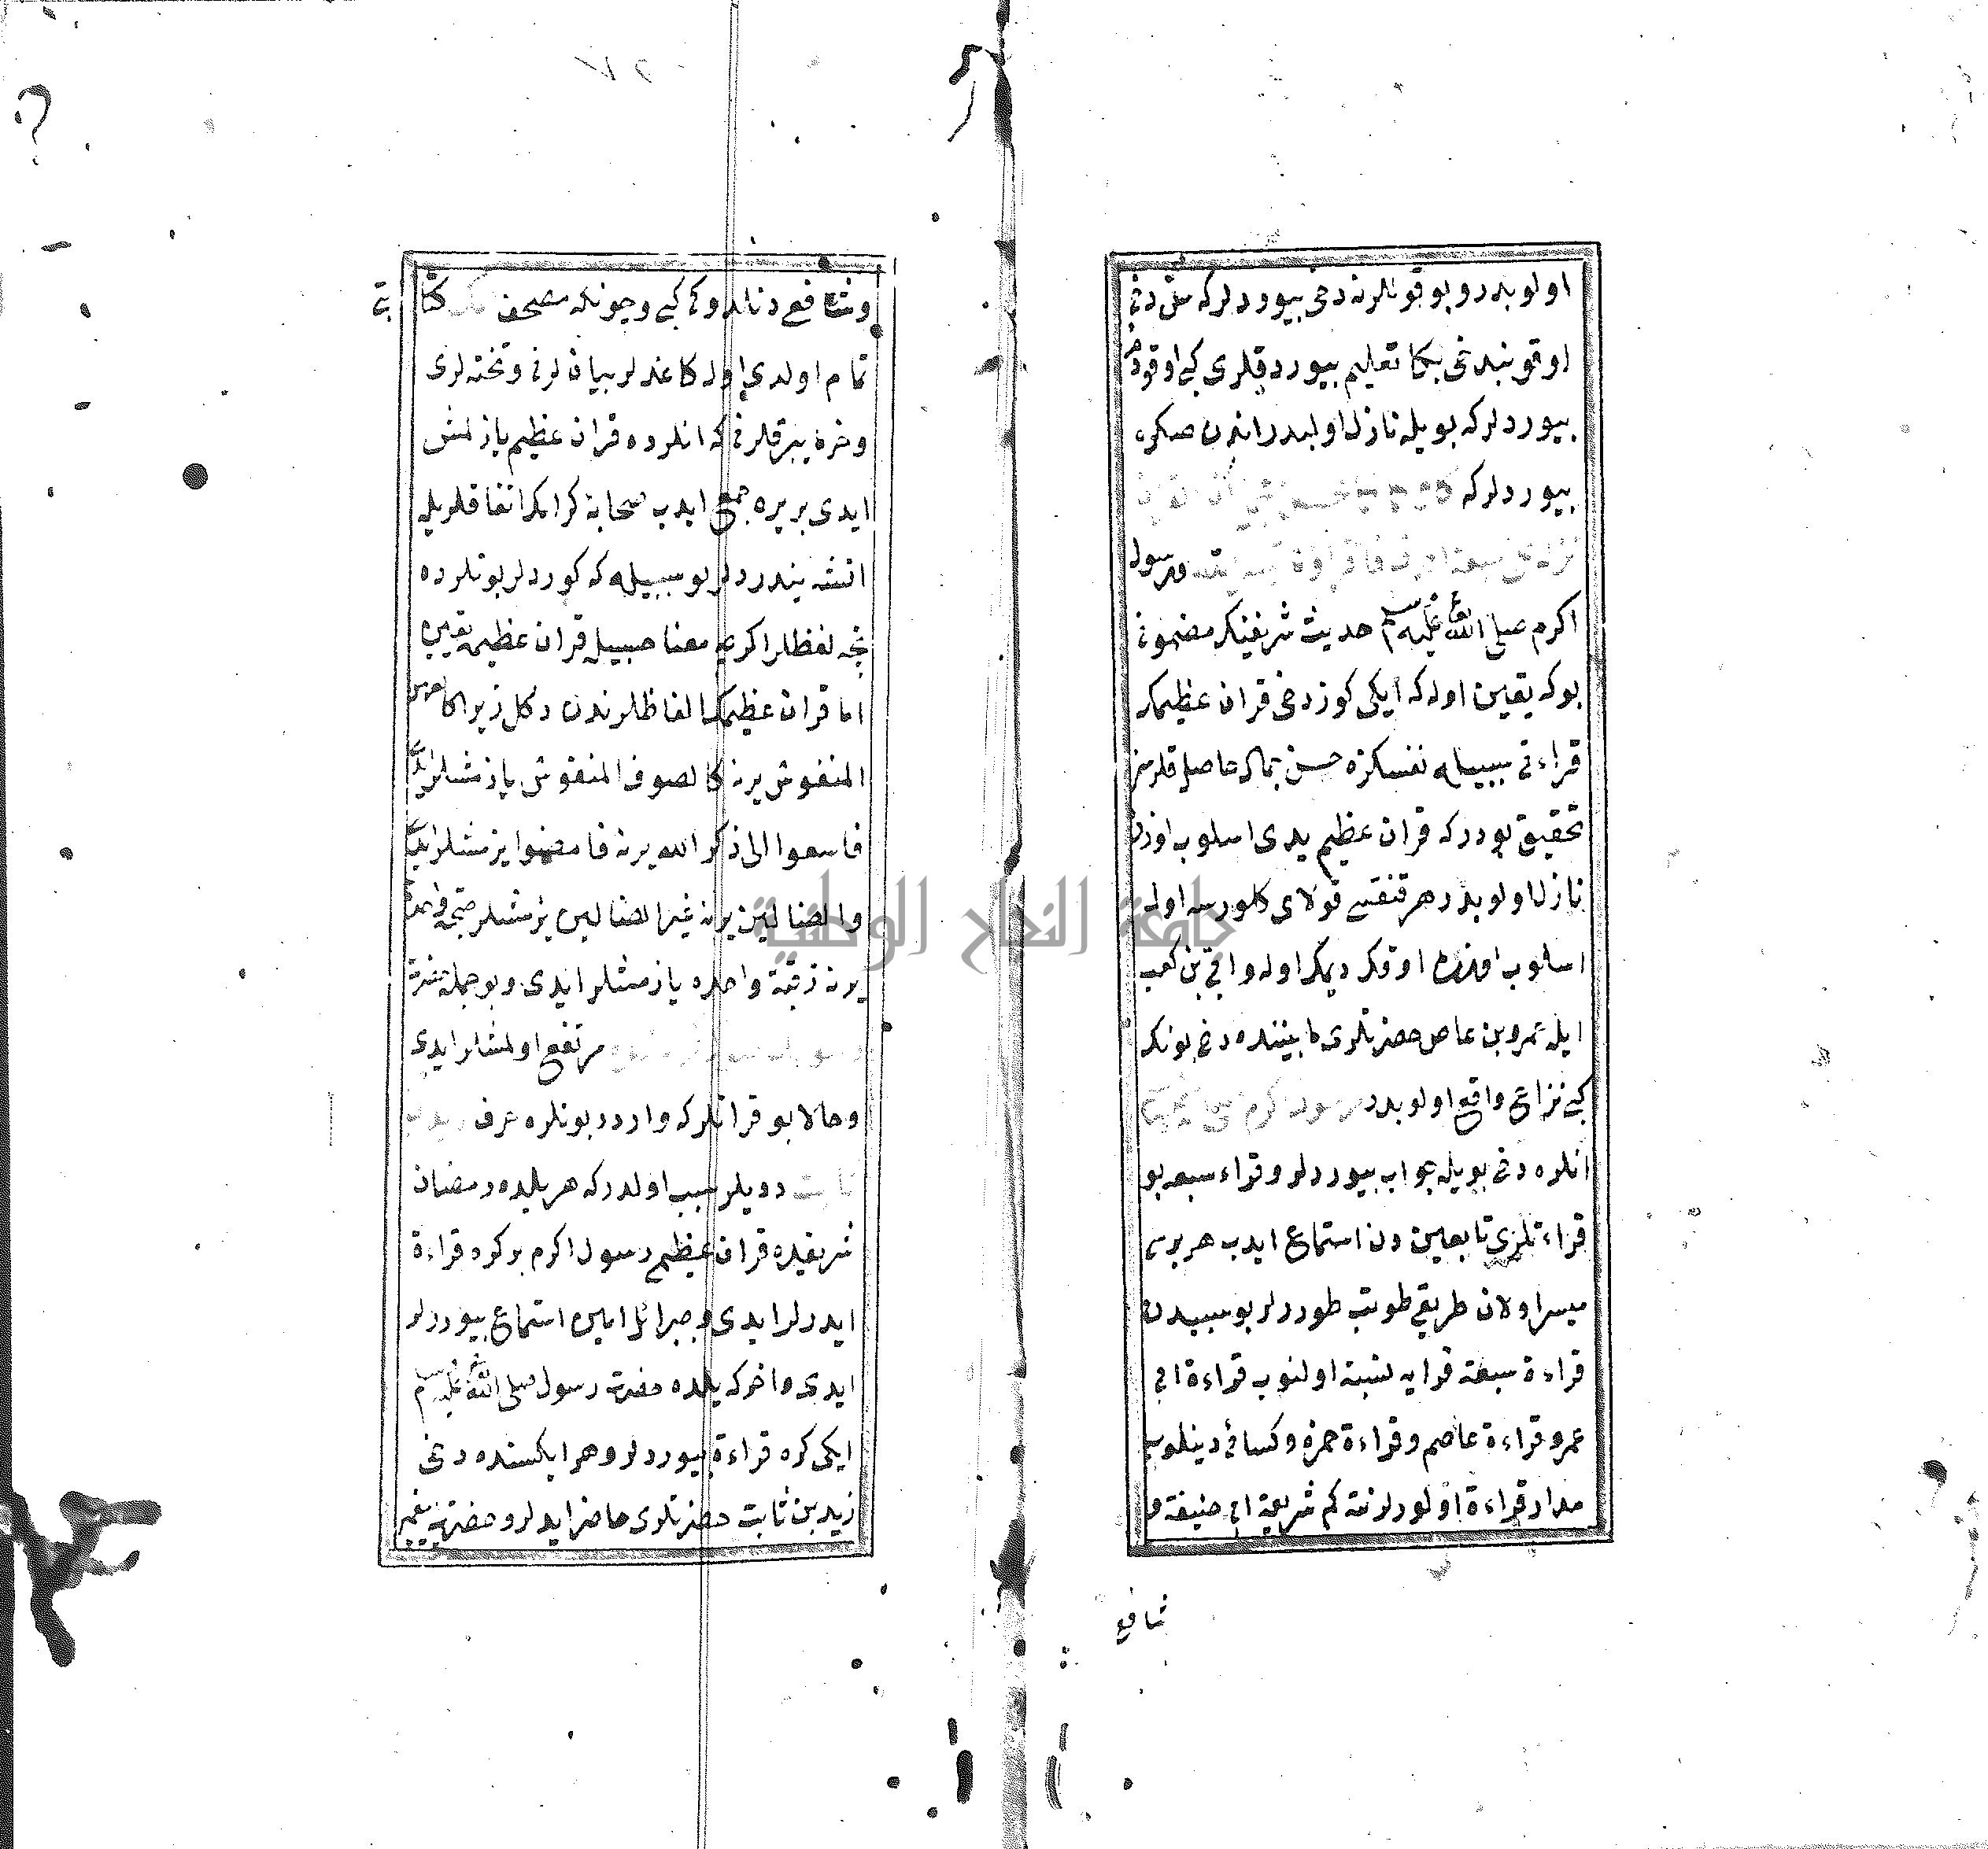 اولوبدر و بو قوللرنه دخی بیوردلر که سن دخی
اوقو بندخی بكا تعلیم بیوردقلری كبی اوقودم
بیوردلر که بویله نازل اولبدر اندن صكره
بیوردلر که
نزل علی سبعة احرف فاقرؤا ورسول
اکرم صلی الله علیه وسلم حدیث شریفینک مضمونی
بو که یقین اوله که ایکی کوز دخی قران عظیمک
قراءتی سببیله نفسکزه حسن جمال حاصل قلرسز
تحقیق بودر که قران عظیم یدی اسلوب اوزره
نازل اولوبدر هر قنقسی قولای کلورسه اول
اسلوب اوزره اوقک دیمک اوله و ابی بن کعب
ایله عمرو بن عاص حضرتلری مابیننده دخی بونک
کبی نزاع واقع اولوبدر رسول اکرم صلی
انلره دخی بویله جواب بیوردلر و قراء سبعه بو
قراءتلری تابعین دن استماع ایدب هر بری
میسر اولان طریقی طوتب طوردلر بو سببدن
قراءة سبعة قرایه نسبة اولنوب قراءة ابی
عمرو قراءة عاصم و قراءة حمزه و کسائی دینلوب
مدار قراءة اولورلر نته کم شریعة ابی حنیفة و
شافع
و شافعی دنلدوکی کبی و چونکه مصحف کتابتی
تمام اولدی اول کاغدلر بیان لرنی و تخته لری
وخرما یپرقلرنی که انلرده قران عظیم یازلمش
ایدی بر یره جمع ایدب صحابه کرامک اتفاقلریله
اتشه یندردلر بو سببیله که کوردلر بونلرده
نجه لفظلر اکرچه معنا حسبیله قران عظیمه یقین
اما قران عظیمک الفاظلرندن دکل زیرا کالعهن
المنفوش یرنه کالصوف المنفوش یازمشلر
فاسعوا الی ذکر الله یرنه فامضوا یزمشلر
والضالین یرنه غیر الضالین یزمشلر
یرنه زقیة واحده یازمشلر ایدی و بو جمله
مرتفع اولمشلر ایدی
و حالا بو قراتلر که واردر بونلره حرف زید بن
ثابت دیدیلر سبب اولدر که هر یلده رمضان
شریفده قران عظیم رسول اکرم بر کره قراءة
ایدرلر ایدی و جبرائل امین استماع بیوررلر
ایدی و اخرکه یلده حضرت رسول صلی الله علیه وسلم
ایکی کره قراءة بیوردلر و هر ایکسنده دخی
زید بن ثابت حضرتلری حاضر ایدلر و حضرت پیغمبر
جامعة النجاح الوطنية